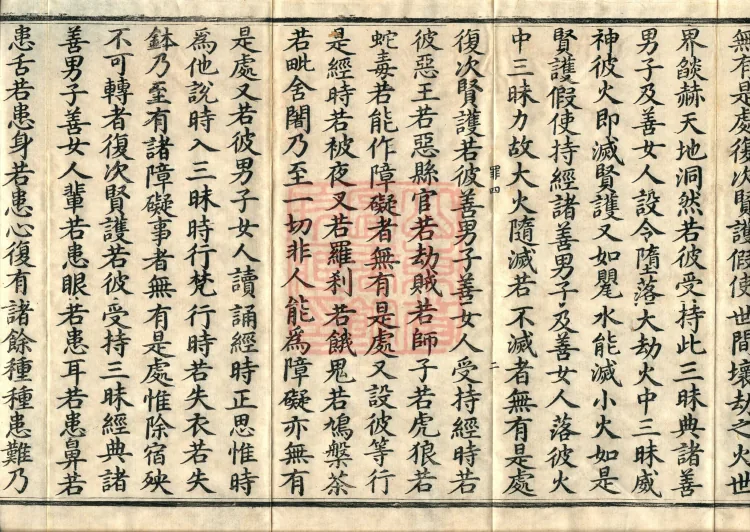 無有是處復次賢護假使世間壞劫之火世
界燄赫天地洞然若彼受持此三昧典諸善
男子及善女人設令墮落大劫火中三昧威
神彼火即滅賢護又如甖水能滅小火如是
賢護假使持經諸善男子及善女人落彼火
中三昧力故大火隨滅若不滅者無有是處
罪四
二
復次賢護若彼善男子善女人受持經時若
彼惡王若惡縣官若劫賊若師子若虎狼若
蛇毒若能作障礙者無有是處又設彼等行
是經時若被夜叉若羅刹若餓鬼若鳩槃荼
若毗舍闍乃至一切非人能為障礙亦無有
是處又若彼男子女人讀誦經時正思惟時
為他說時入三昧時行梵行時若失衣若失
鉢乃至有諸障礙事者無有是處惟除宿殃
不可轉者復次賢護若彼受持三昧經典諸
善男子善女人輩若患眼若患耳若患鼻若
患舌若患身若患心復有諸餘種種患難乃